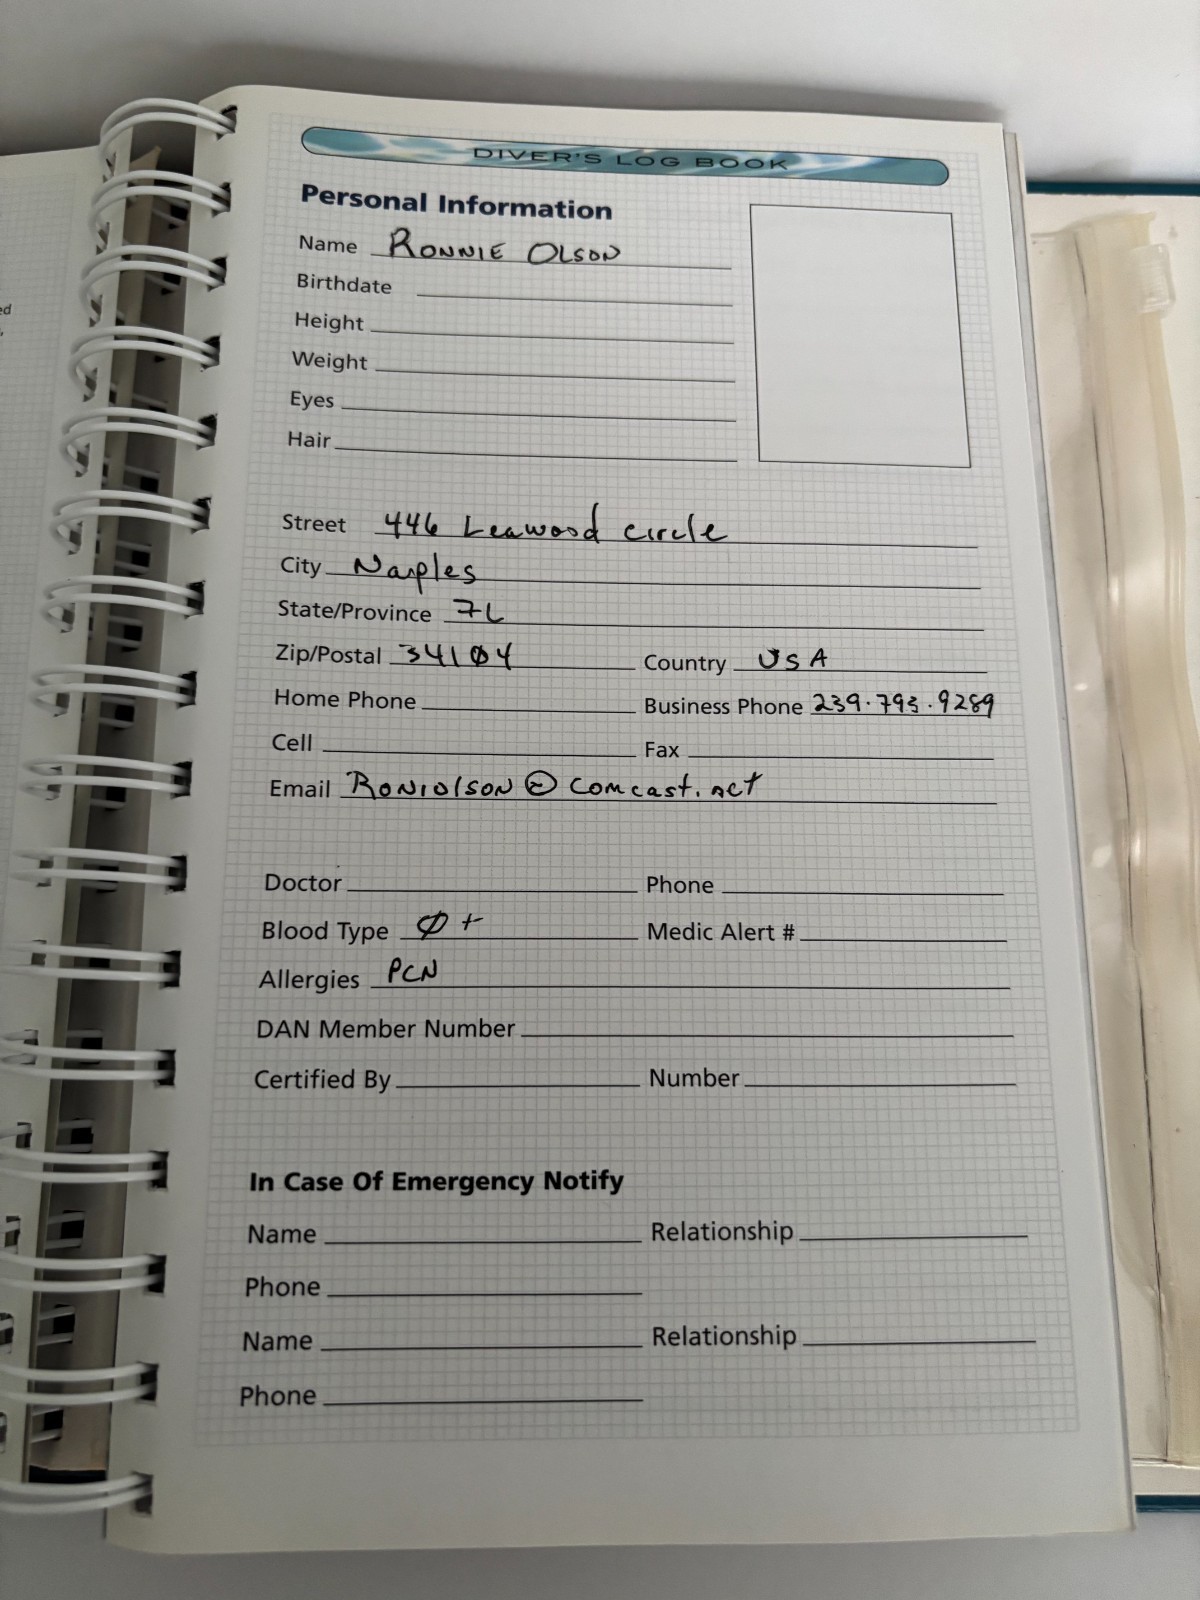 ed
DIVER'S LOG BOOK
Personal Information
Name RONNIE OLSON
Birthdate
Height
Weight
Eyes
Hair
Street 446 Leawood circle
City Naples
State/Province FL
Zip/Postal 34104 Country USA
Home Phone Business Phone 239.793.9289
Cell Fax
Email RONIOlSON@comcast.net
Doctor Phone
Blood Type O+ Medic Alert #
Allergies PCN
DAN Member Number
Certified By Number
In Case Of Emergency Notify
Name Relationship
Phone
Name Relationship
Phone